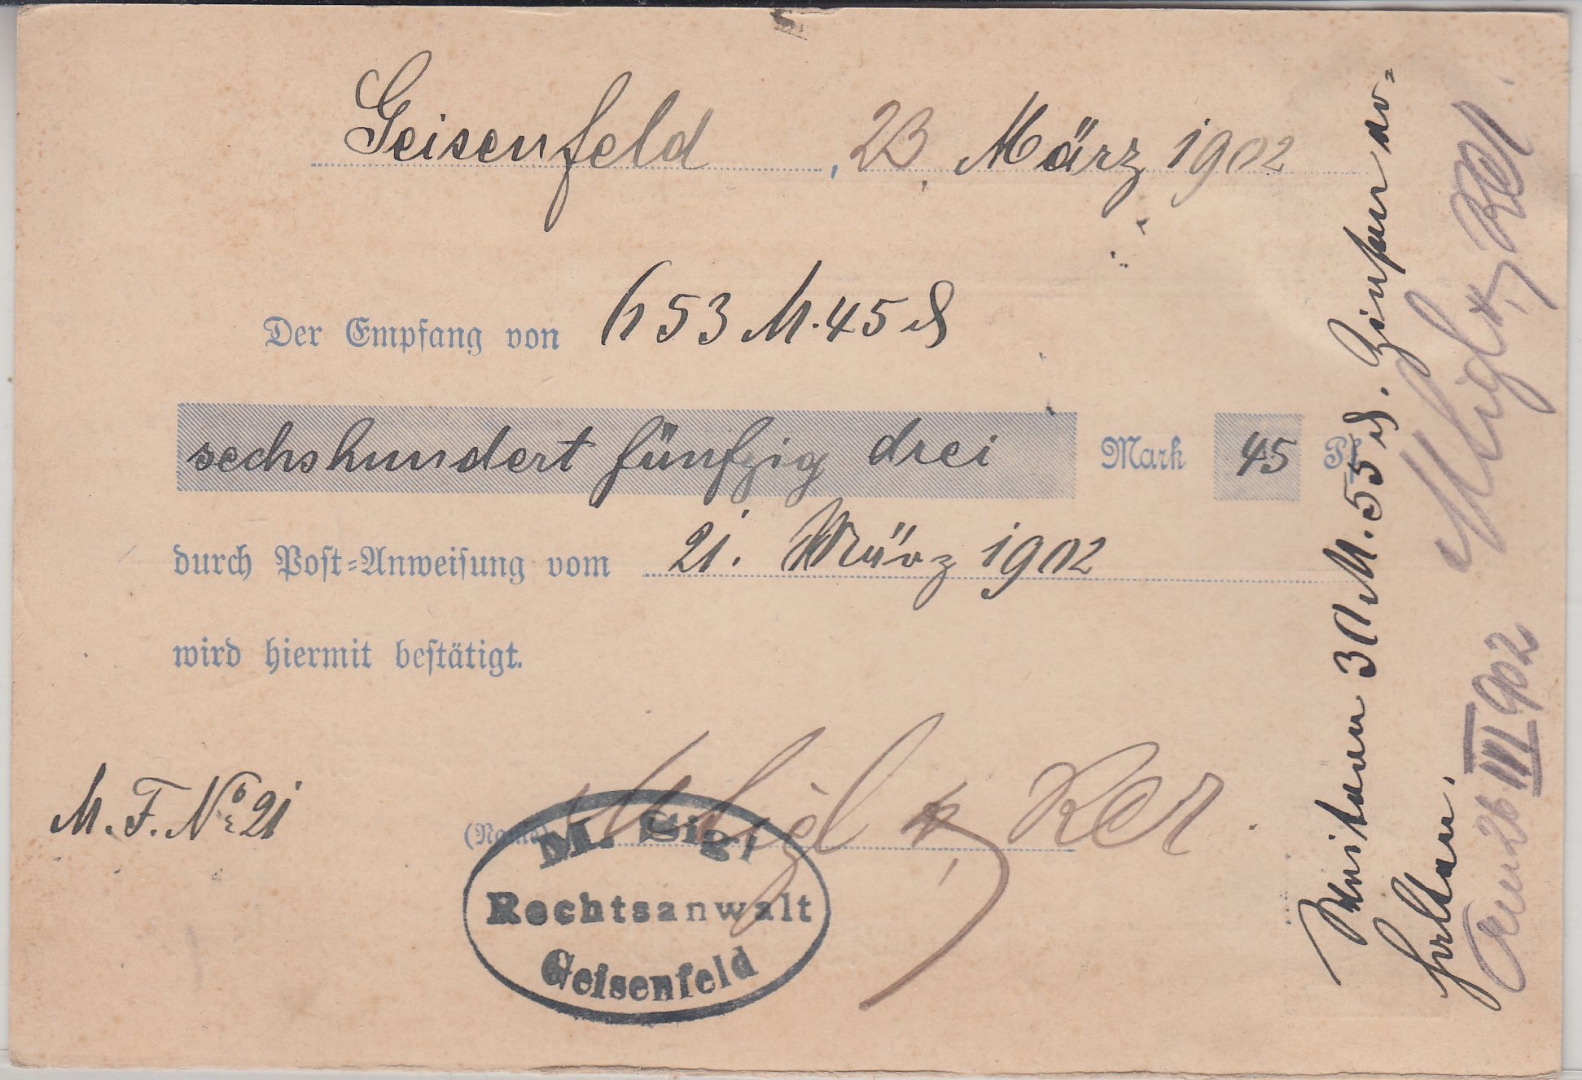 Geisenfeld, 23. März 1902
Der Empfang von 653 M. 45 ₰
sechshundert fünfzig drei Mark 45 Pf.
durch Post-Anweisung vom 21. März 1902
wird hiermit bestätigt.
M. F. No 21
(Name) MSigl, RA.
M. Sigl
Rechtsanwalt
Geisenfeld
Weitere 30 M. 55 ₰. Zinsen er-
halten.
26 III 902
MSigl,